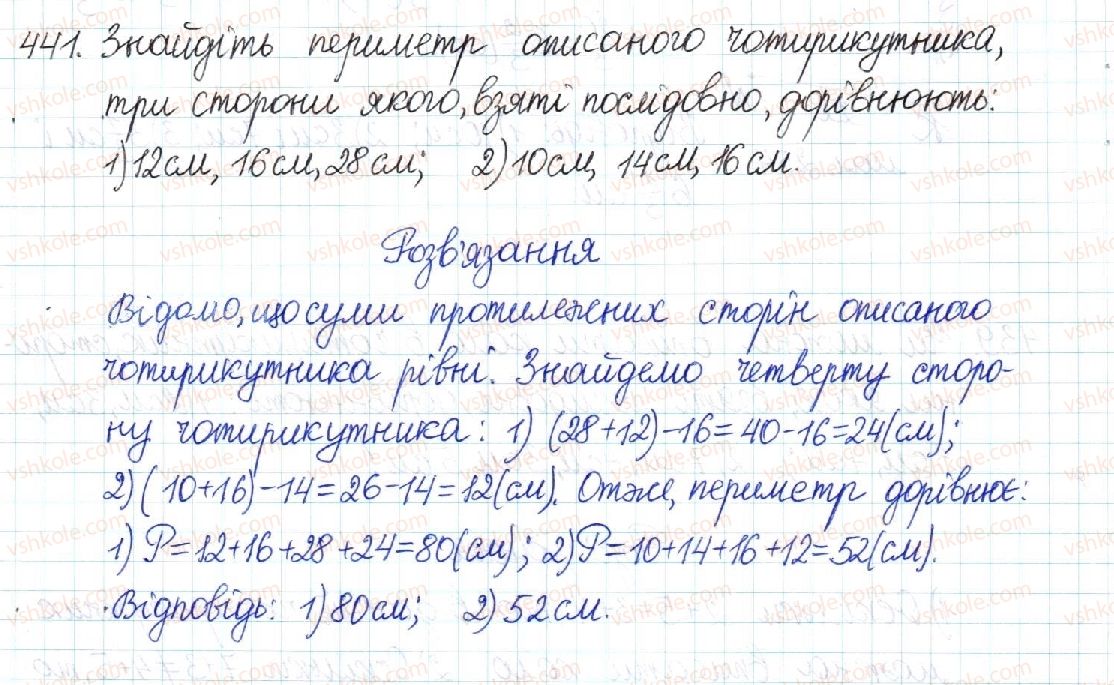 441. Знайдіть периметр описаного чотирикутника,
три сторони якого, взяті послідовно, дорівнюють:
1) 12 см, 16 см, 28 см; 2) 10 см, 14 см, 16 см.
Розв'язання
Відомо, що суми протилежних сторін описаного
чотирикутника рівні. Знайдемо четверту сторо-
ну чотирикутника: 1) (28+12)-16=40-16=24(см);
2) (10+16)-14=26-14=12(см). Отже, периметр дорівнює:
1) P=12+16+28+24=80(см); 2) P=10+14+16+12=52(см).
Відповідь: 1) 80 см; 2) 52 см.